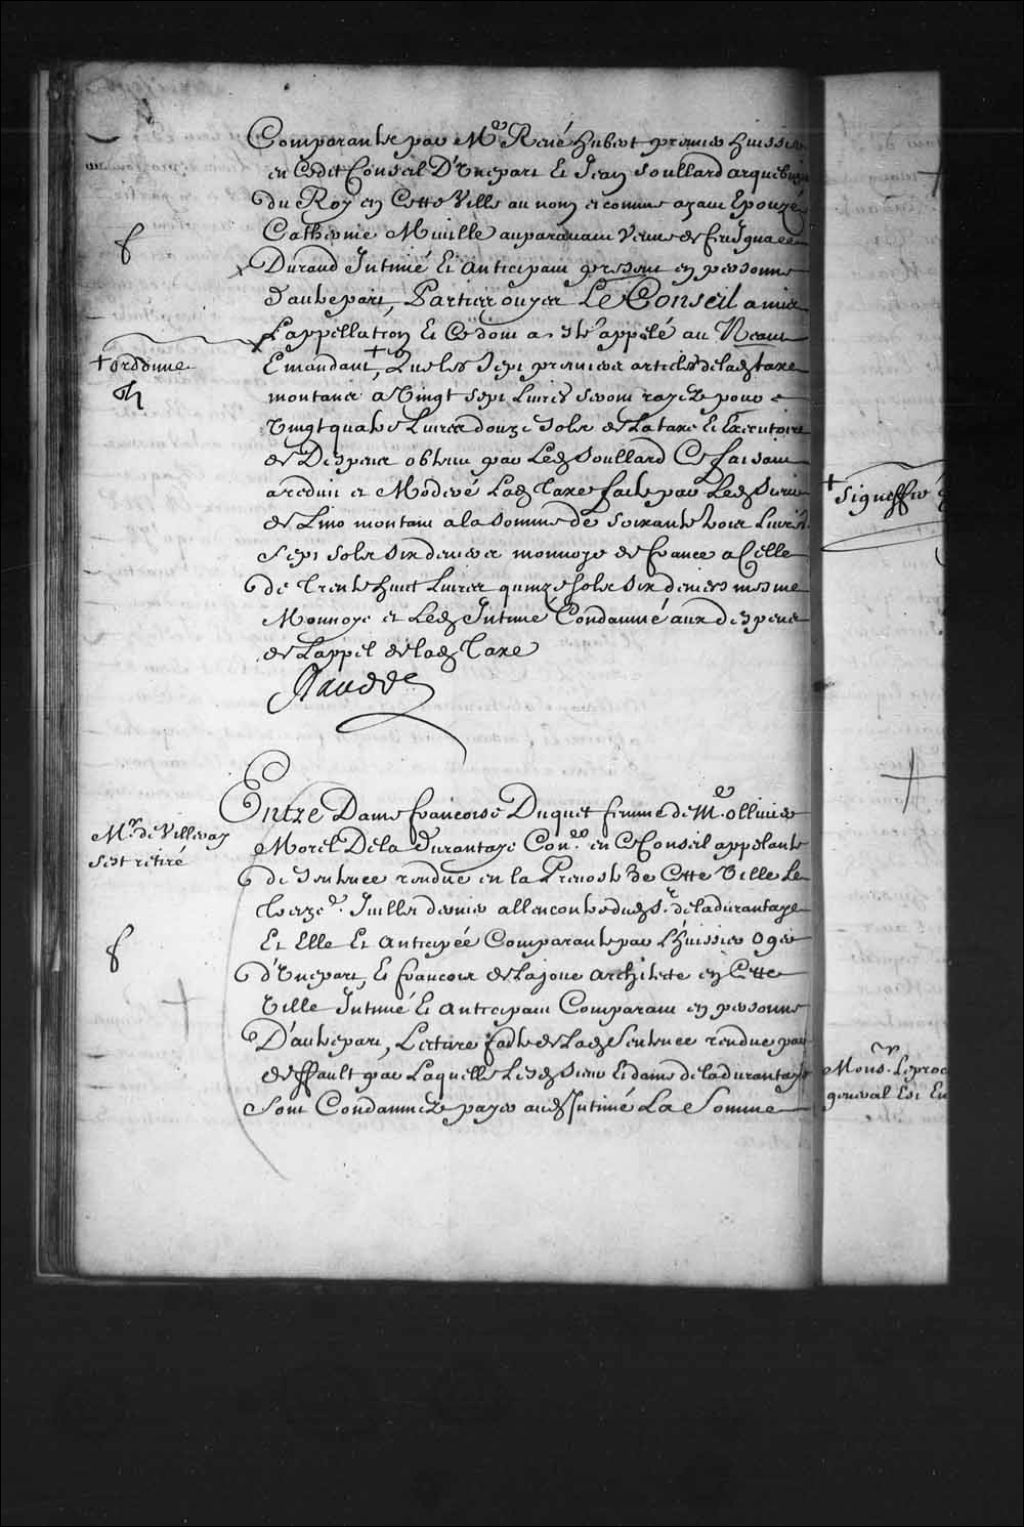 Comparante par Me René hubert premier huissier
en Cedit Conseil D'Unepart Et Jean Soullard arquebuzier
du Roy en Cette Ville au nom et comme ayant Epouzé
Catherine Miville auparavant Veuve de feu Ignace
Durand Intimé Et anticipant present en personne
d'autrepart, Parties ouyes Le Conseil a mis
Lappellation Et Ce dont a esté appelé au Neant
+ ordonne
Emandant, + Que les Sept premiers articles de lade taxe
montans a Vingt Sept Livres seront rayez pour
Vingt quatre Livres douze Sols de La taxe Et Executoire
de Despens obtenu par Led Soullard Ce faisant
a reduit et Moderé Lad Taxe faite par Led Sieur
de Lino montant a la Somme de soixante trois Livres
Sept Sols six deniers monnoye de france a Celle
de Trente huit Livres quinze Sols six deniers mesme
Monnoye et Led Intimé Condamné aux despens
de Lappel de lad Taxe
Mr de Villeray
sest retiré
Entre Dame francoise Duquet femme de Me ollivier
Morel De la Durantaye Coner en Ce Conseil appelante
de Sentence rendue en la Prevosté de Cette Ville Le
treize Juillet dernier allencontre dud Sr de ladurantaye
Et Elle Et anticipée Comparante par L'huissier Oger
d'Unepart, Et francois de Lajoue architecte en Cette
Ville Intimé Et anticipant Comparant en personne
D'autrepart, Lecture faite de Lad Sentence rendue par
deffault par Laquelle Lesd Sieur Et dame de ladurantaye
Sont Condamnez payer aud Intimé La Somme
+ signeffié
Monsr Leproc
general Est En